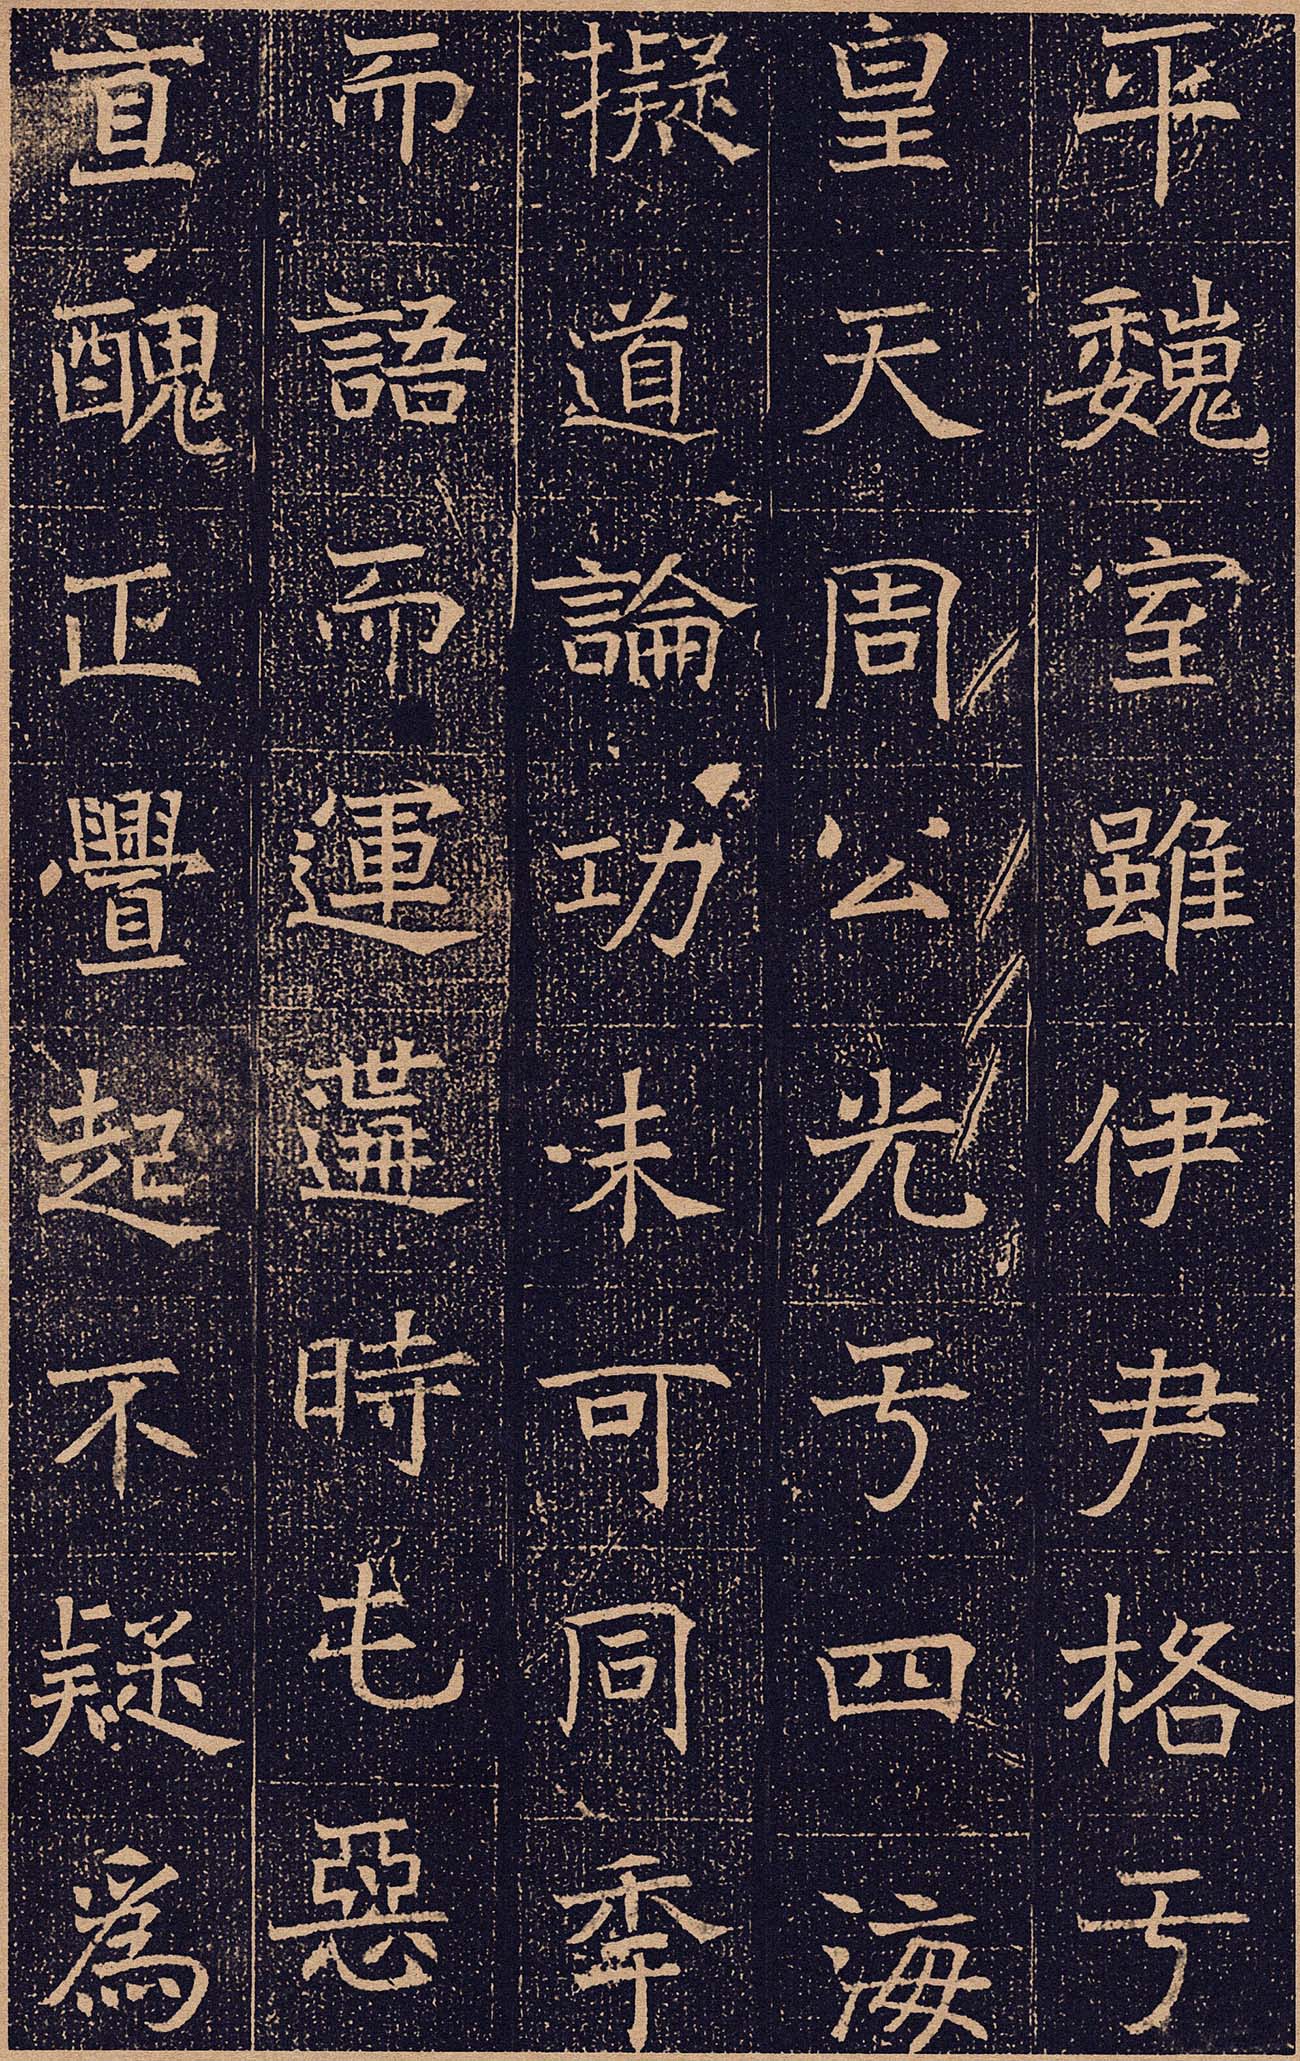 平魏室雖伊尹格于
皇天周公光于四海
擬道論功未可同年
而語而運遘時屯惡
直醜正釁起不疑爲